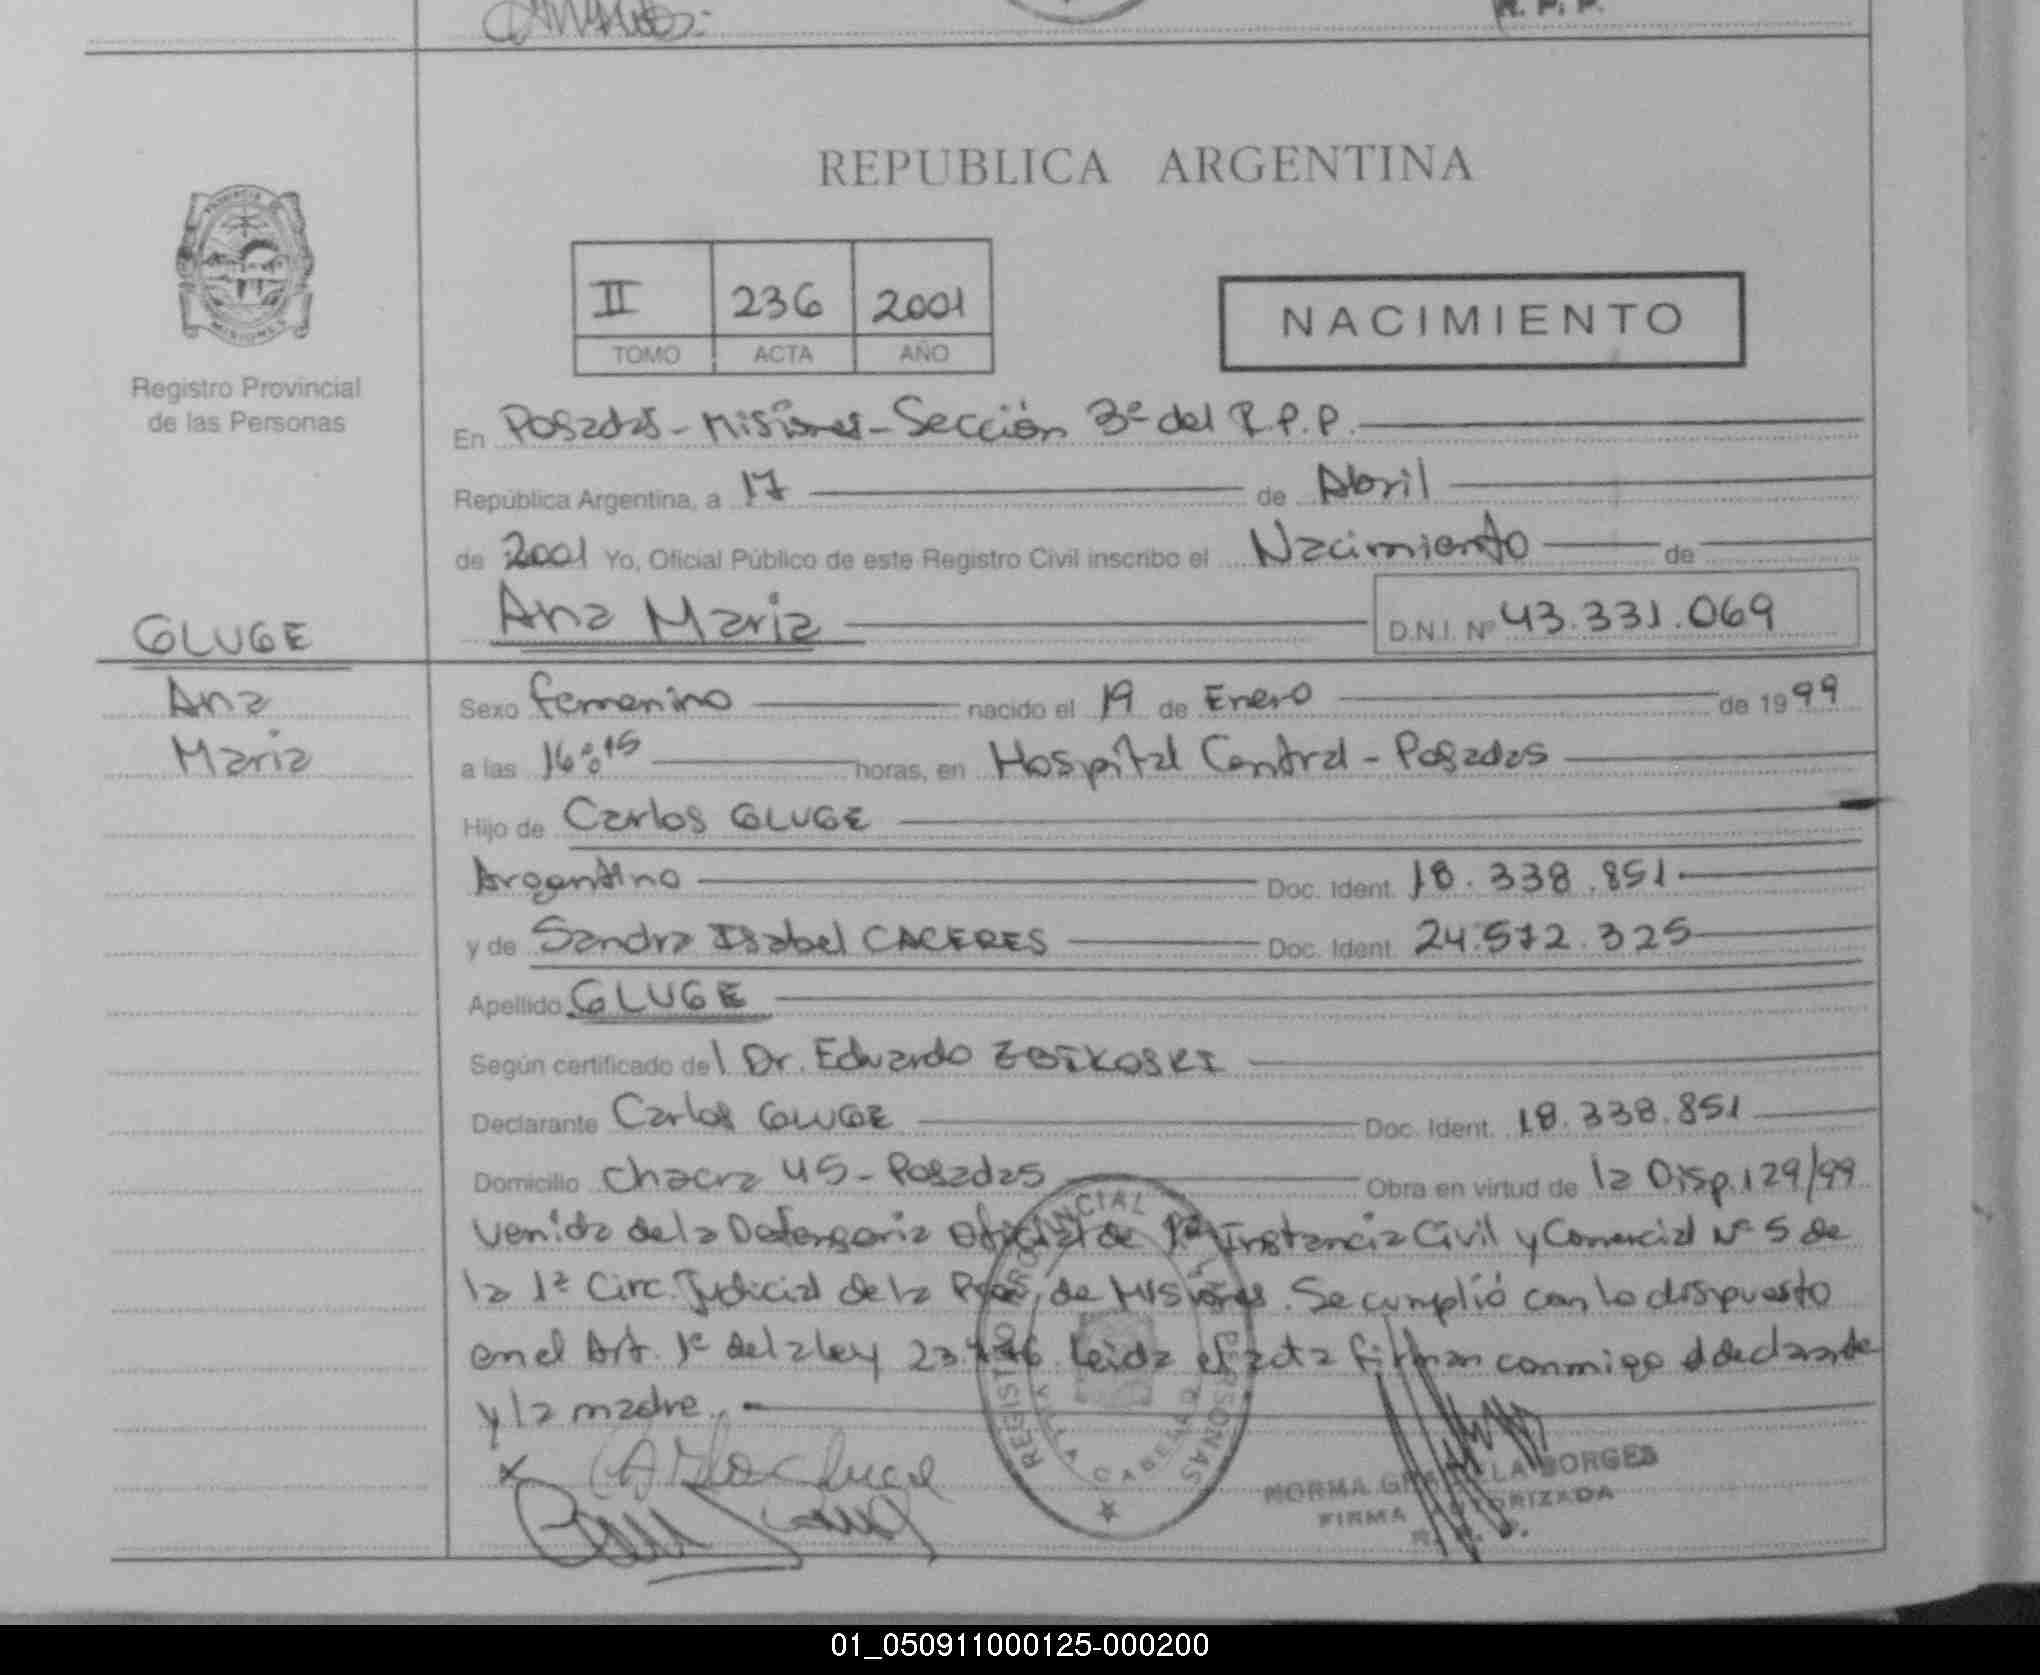 R. P. P.
REPUBLICA ARGENTINA
II 236 2001
TOMO ACTA AÑO
NACIMIENTO
Registro Provincial
de las Personas
En Posadas - Misiones - Sección 3ª del R.P.P.
República Argentina, a 17 de Abril
de 2001 Yo, Oficial Público de este Registro Civil inscribo el Nacimiento de
Ana Maria D.N.I. Nº 43.331.069
GLUGE
Ana
Maria
Sexo femenino nacido el 19 de Enero de 1999
a las 16:15 horas, en Hospital Central - Posadas
Hijo de Carlos GLUGE
Argentino Doc. Ident. 18.338.851
y de Sandra Isabel CACERES Doc. Ident. 24.572.325
Apellido GLUGE
Según certificado del Dr. Eduardo ZBIKOSKI
Declarante Carlos GLUGE Doc. Ident. 18.338.851
Domicilio Chacra 45 - Posadas Obra en virtud de la Disp. 129/99
venida de la Defensoria Oficial de 1ª Instancia Civil y Comercial Nº 5 de
la 1ª Circ. Judicial de la Pcia. de Misiones. Se cumplió con lo dispuesto
en el Art. 1º de la ley Leida el acta firman conmigo el declarante
y la madre.
REGISTRO PROVINCIAL DE LAS PERSONAS
NORMA GRACIELA BORGES
FIRMA AUTORIZADA
R. P. P.
01_050911000125-000200